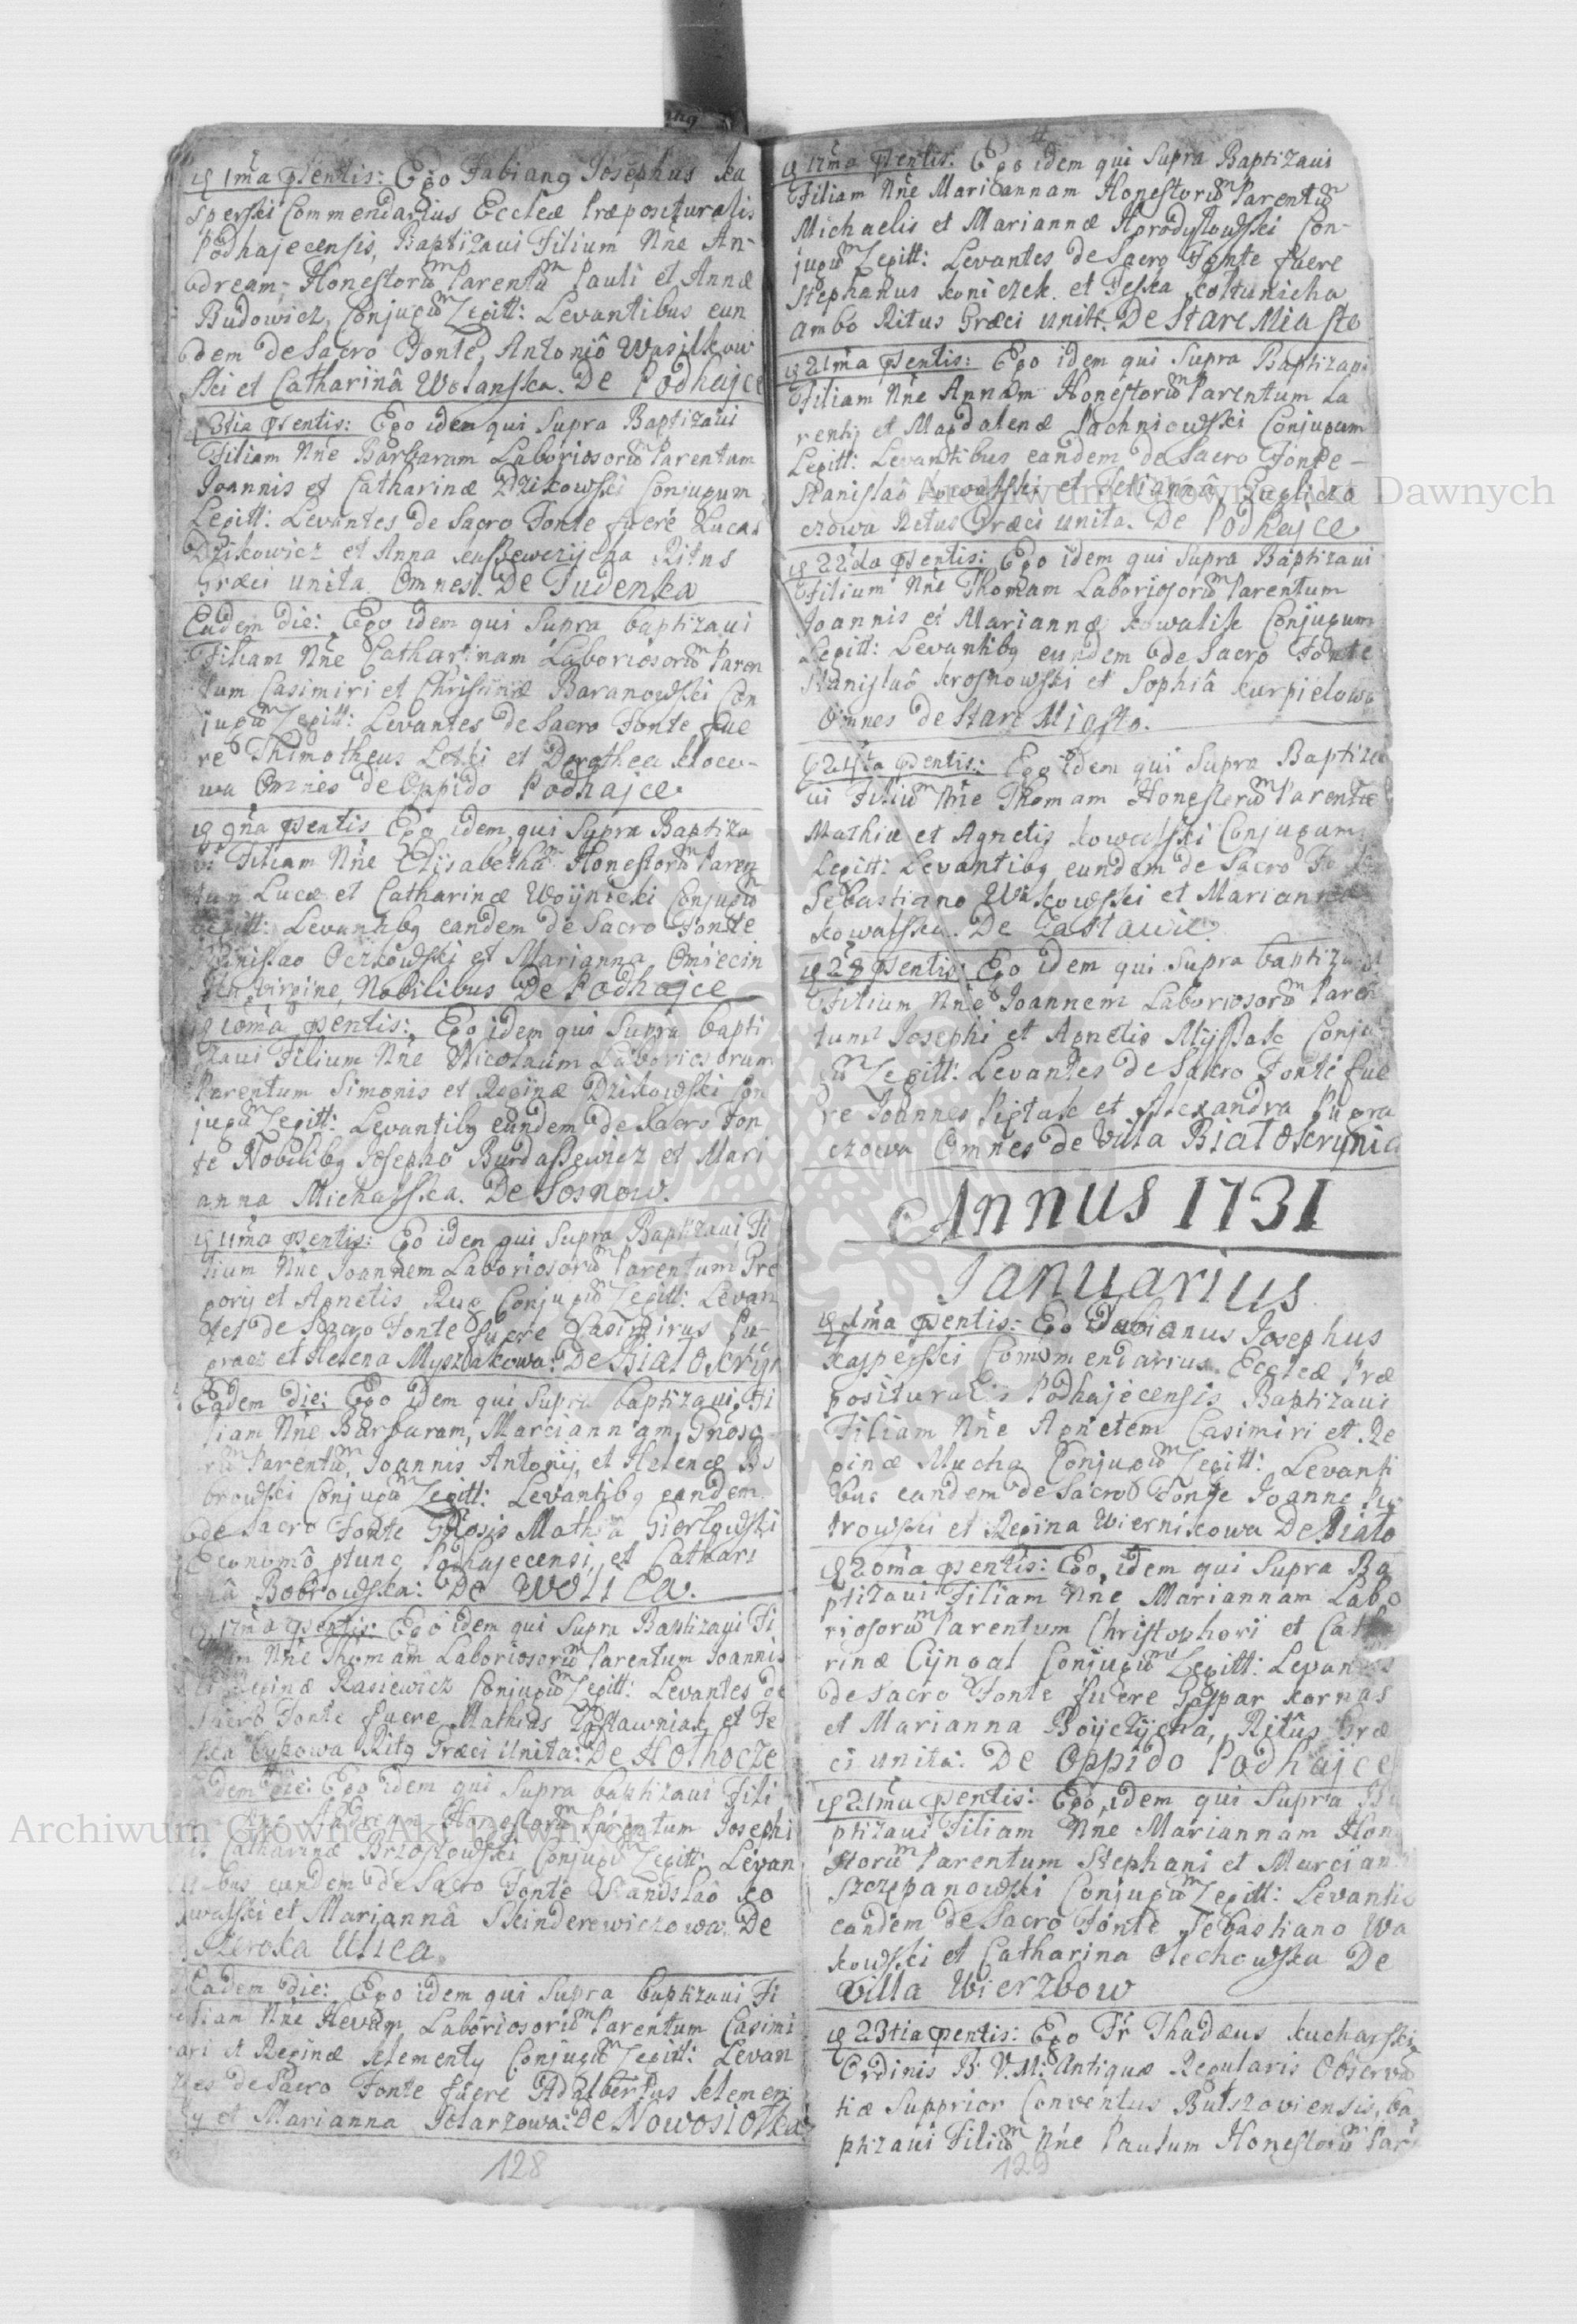 1ma psentis: Ego Fabiang Josephus Ka
sperski Commendarius Eccleæ Præposituralis
Podhajecensis, Baptizaui Filium Nne An-
dream, Honestorum Parentum Pauli et Annæ
Budowicz, Conjugum Legitt: Levantibus eun
dem de Sacro Fonte, Antoniô Wasilkow
ski et Catharinâ Wolanska. De Podhajce
3tia psentis: Ego idem qui Supra Baptizaui
Filiam Nne Barbaram Laboriosorum Parentum
Joannis et Catharinæ Dzikowski Conjugum
Legitt: Levantes de Sacro Fonte fuere Lucas
Dzikowicz et Anna Ritus
Græci unita Omnes. De Judenka
Eadem die: Ego idem qui Supra baptizaui
Filiam Nne Catharinam Laboriosorum Paren
tum Casimiri et Christinæ Baranowski Con
jugum Legitt: Levantes de Sacro Fonte fue
re Thimotheus et Dorothea
wa Omnes de Oppido Podhajce.
9na psentis Ego idem qui Supra Baptiza
vi Filiam Nne Elisabetham Honestorum Paren
tum Lucæ et Catharinæ Woÿnicki Conjugum
Legitt: Levantibg eandem de Sacro Fonte
Stanislao Oczkowski et Marianna Omiecin
virgine, Nobilibus De Podhajce
10ma psentis: Ego idem qui Supra bapti
zaui Filium Nne Nicolaum Laboriosorum
Parentum Simonis et Reginæ Dzikowski Con
jugum Legitt: Levantibg eundem de Sacro Fon
te Nobilibg Josepho Burdassewicz et Mari
anna Michalska. De Sosnow.
11ma psentis: Ego idem qui Supra Baptizaui Fi
lium Nne Joannem Laboriosorum Parentum Gre
gorij et Agnetis Rug Conjugum Legitt: Levan
tes de Sacro Fonte fuere Casimirus Pu-
gracz et Helena Myszlakowa: De Białoskryn
Eadem die: Ego idem qui Supra baptizaui, Fi
liam Nne Barbaram, Mariannam, Gnoso
rum Parentum, Joannis Antonij, et Helenæ Bo
browski Conjugum Legitt: Levantibg eandem
de Sacro Fonte Gnosis Mathia Gierłowski
Economô ptunc Podhajecensi, et Cathari
nâ Bobrowska: De WOLICA.
17ma psentis: Ego idem qui Supra Baptizaui Fi
lium Nne Thomam Laboriosorum Parentum Joannis
et Reginæ Rasiewicz Conjugum Legitt: Levantes de
Sacro Fonte fuere Mathias Zastawniak et Te
ska Bykowa Ritg Græci Unita: De Hołhocze
Eadem die: Ego idem qui Supra baptizaui Fili
um Nne Andream Honestorum Parentum Josephi
et Catharinæ Brzostowski Conjugum Legitt: Levan
tibus eundem de Sacro Fonte Stanislaô Ko
walski et Mariannâ Skinderewiczowa. De
Szeroka Ulica.
Eadem die: Ego idem qui Supra baptizaui Fi
liam Nne Hevam Laboriosorum Parentum Casimi
ri et Reginæ Klementy Conjugum Legitt: Levan
tes de Sacro Fonte fuere Adalbertus Klemen
ty et Marianna Stolarzowa: De Nowosiołka
128
17ma psentis: Ego idem qui Supra Baptizaui
Filiam Nne Mariannam Honestorum Parentum
Michaelis et Mariannæ Horodysłowski Con-
jugum Legitt: Levantes de Sacro Fonte fuere
Stephanus Koniczek et Teska Kołtunicha
ambo Ritus Græci unitt. De Stare Miasto
21ma psentis: Ego idem qui Supra Baptizaui
Filiam Nne Annam Honestorum Parentum La
rentij et Magdalenæ Pachniowski Conjugum
Legitt: Levantibus eandem de Sacro Fonte -
Stanislaô Kowalski et
czowa Ritus Græci unita. De Podhajce
22da psentis: Ego idem qui Supra Baptizaui
Filium Nne Thomam Laboriosorum Parentum
Joannis et Mariannæ Kowalik Conjugum
Legitt: Levantibg eundem de Sacro Fonte
Stanislaô Krosnowski et Sophiâ Kurpielowa
Omnes de Stare Miasto.
24ta psentis: Ego idem qui Supra Baptiza
ui Filium Nne Thomam Honestorum Parentum
Mathiæ et Agnetis Kowalski Conjugum
Legitt: Levantibg eundem de Sacro Fonte
Sebastiano Wąkowski et Marianna
Kowalska. De Zastawie.
28 psentis: Ego idem qui Supra baptizaui
Filium Nne Joannem Laboriosorum Paren
tum Josephi et Agnetis Myslak Conju
gum Legitt: Levantes de Sacro Fonte fue
re Joannes Piętak et Alexandra Pugra
czowa Omnes de Villa Białoskrynia
Annus 1731
Januarius
1ma psentis: Ego Fabianus Josephus
Kasperski Commendarius Eccleæ Præ
posituralis Podhajecensis Baptizaui
Filiam Nne Agnetem Casimiri et Re
ginæ Mucha Conjugum Legitt: Levanti
bus eandem de Sacro Fonte Joanne Pio
trowski et Regina Wiernikowa De Biało
20ma psentis: Ego, idem qui Supra Ba
ptizaui Filiam Nne Mariannam Labo
riosorum Parentum Christophori et Catha
rinæ Cÿngal Conjugum Legitt: Levantes
de Sacro Fonte fuere Gaspar Karnas
et Marianna Boÿczÿcha, Ritûs Græ
ci unita: De Oppido Podhajce
21ma psentis: Ego, idem qui Supra Ba
ptizaui Filiam Nne Mariannam Hone
storum Parentum Stephani et Marcian
Szczepanowski Conjugum Legitt: Levantib
eandem de Sacro Fonte Sebastiano Wa
kowski et Catharina Olechowska De
Villa Wierzbow
23tia psentis: Ego Fr Thadæus Kucharski
Ordinis B: V. M: Antiquæ Regularis Observa
tiæ Supprior Conventus Butszoviensis, ba
ptizaui Filium Nne Paulum Honestorum Par
129
Archiwum Główne Akt Dawnych
Archiwum Główne Akt Dawnych